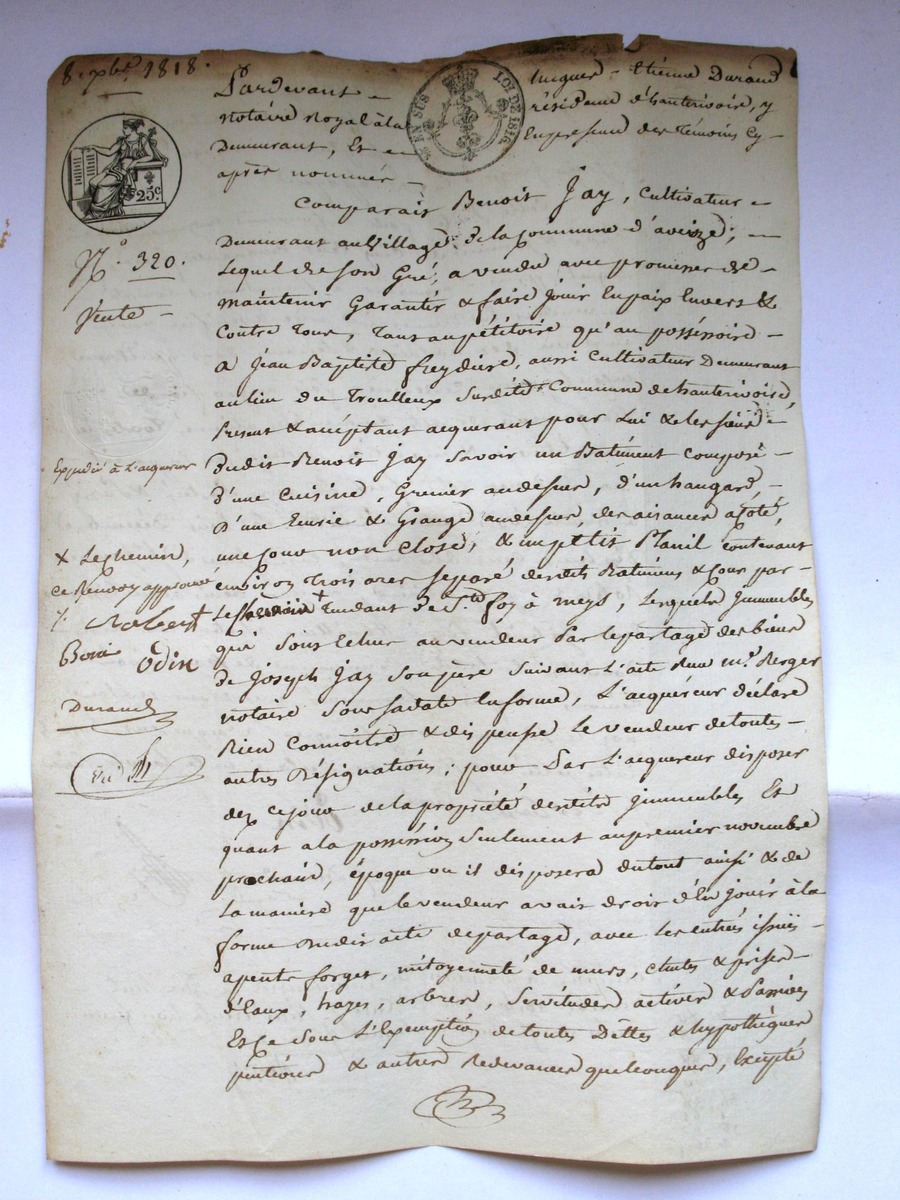 8. 7bre 1818.
EN SUS
LOI DE 1816
25.c
Nº. 320.
Vente
Expedié à L'acquereur
+ Le chemin,
ce Renvoy approuvé
Robert
Boni Odin
Durand
Pardevant Etienne Durand
notaire Royal à la résidence d'hauterivoire, y
Demeurant, Et En presence des Témoins Cy-
après nommés
Comparait Benoit Jay, Cultivateur
Demeurant au Village de la Commune d'aveize,
Lequel de son Gré, a vendu avec promesse de
maintenir Garantir & faire jouir En paix Envers &
Contre Tous, Tant au pétitoire qu'au possessoire
a Jean Baptiste freydiere, aussi Cultivateur Demeurant
au lieu du Troulleux Commune de hauterivoire
Present & acceptant acquerant pour Lui & les siens
Dudit Benoit Jay Savoir un Batiment composé
D'une Cuisine, Grenier au dessus, d'un hangard,
D'une Ecurie & Grange au dessus, des aisances a Coté,
une Cour non Close, & un petit Planil contenant
environ Trois ares separé desdits Batimens & Cour par
Le chemin + Tendant de Ste. foy à meys, Lesquels Immeubles
qui Sont Echus au vendeur Par le partage des biens
De Joseph Jay Son père Suivant L'acte Reçu me. Berger
notaire Sous sa date En forme, L'acquéreur déclare
Bien Connoitre & dispense Le vendeur de toutes
autres Désignations; pour Par L'acquereur disposer
dez ce jour de la propriété desdits Immeubles Et
quant a la possession Seulement au premier novembre
prochain, époque ou il disposera du tout ainsi & de
La maniere que le vendeur avait droit d'En jouir à la
forme dudit acte de partage, avec Les entrées issues
apent forges, mitoyenneté de murs, chutes & prises
d'Eaux, hayes, arbres, Servitudes actives & Passives
Et ce Sous L'Exemption de toutes Dettes & hypothèques
pentions & autres Redevances quelconques, Excepté